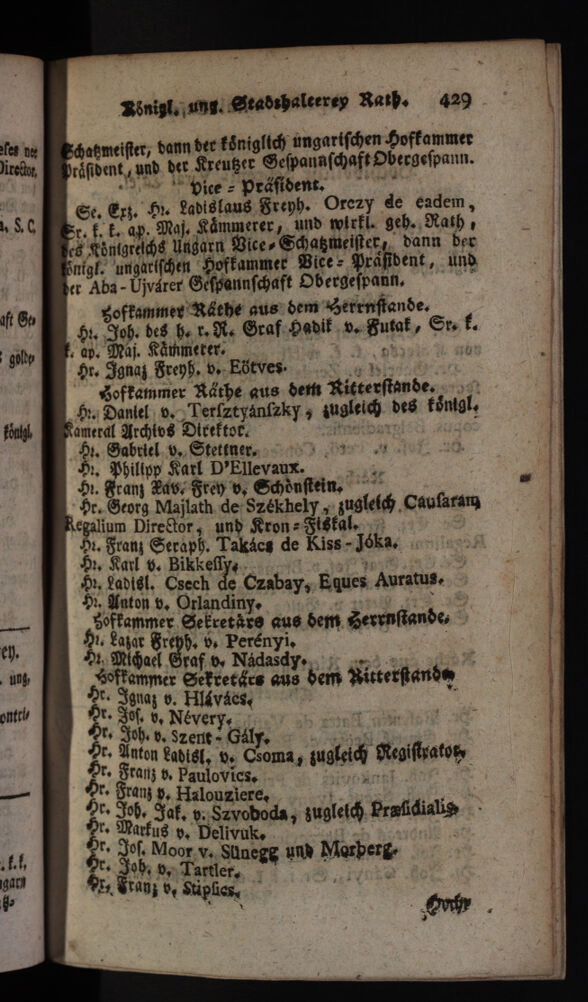 Königl. ung. Stadthalterey Rath. 429
Schatzmeister, dann der königlich ungarischen Hofkammer
Präsident, und der Kreutzer Gespannschaft Obergespann.
Vice-Präsident.
Se. Erz. Hr. Ladislaus Freyh. Orczy de eadem,
Sr. k. k. ap. Maj. Kämmerer, und wirkl. geh. Rath,
des Königreichs Ungarn Vice-Schatzmeister, dann der
königl. ungarischen Hofkammer Vice-Präsident, und
der Aba-Ujvárer Gespannschaft Obergespann.
Hofkammer Räthe aus dem Herrnstande.
Hr. Joh. des h. r. R. Graf Hadik v. Futak, Sr. k.
k. ap. Maj. Kämmerer.
Hr. Ignaz Freyh. v. Eötves.
Hofkammer Räthe aus dem Ritterstande.
Hr. Daniel v. Tersztyánszky, zugleich des königl.
Kameral Archivs Direktor.
Hr. Gabriel v. Stettner.
Hr. Philipp Karl D'Ellevaux.
Hr. Franz Xav. Frey v. Schönstein.
Hr. Georg Majlath de Székhely, zugleich Causarum
Regalium Director, und Kron-Fiskal.
Hr. Franz Seraph. Takács de Kiss-Jóka.
Hr. Karl v. Bikkessy.
Hr. Ladisl. Csech de Czabay, Eques Auratus.
Hr. Anton v. Orlandiny.
Hofkammer Sekretärs aus dem Herrnstande.
Hr. Lazar Freyh. v. Perényi.
Hr. Michael Graf v. Nádasdy.
Hofkammer Sekretärs aus dem Ritterstande
Hr. Ignaz v. Hlávács.
Hr. Jos. v. Névery.
Hr. Joh. v. Szent-Gály.
Hr. Anton Ladisl. v. Csoma, zugleich Registrator.
Hr. Franz v. Paulovics.
Hr. Franz v. Halouziere.
Hr. Joh. Jak. v. Szvoboda, zugleich Præsidialis.
Hr. Markus v. Delivuk.
Hr. Jos. Moor v. Sünegg und Morberg.
Hr. Joh. v. Tartler.
Hr. Franz v. Stipsics.